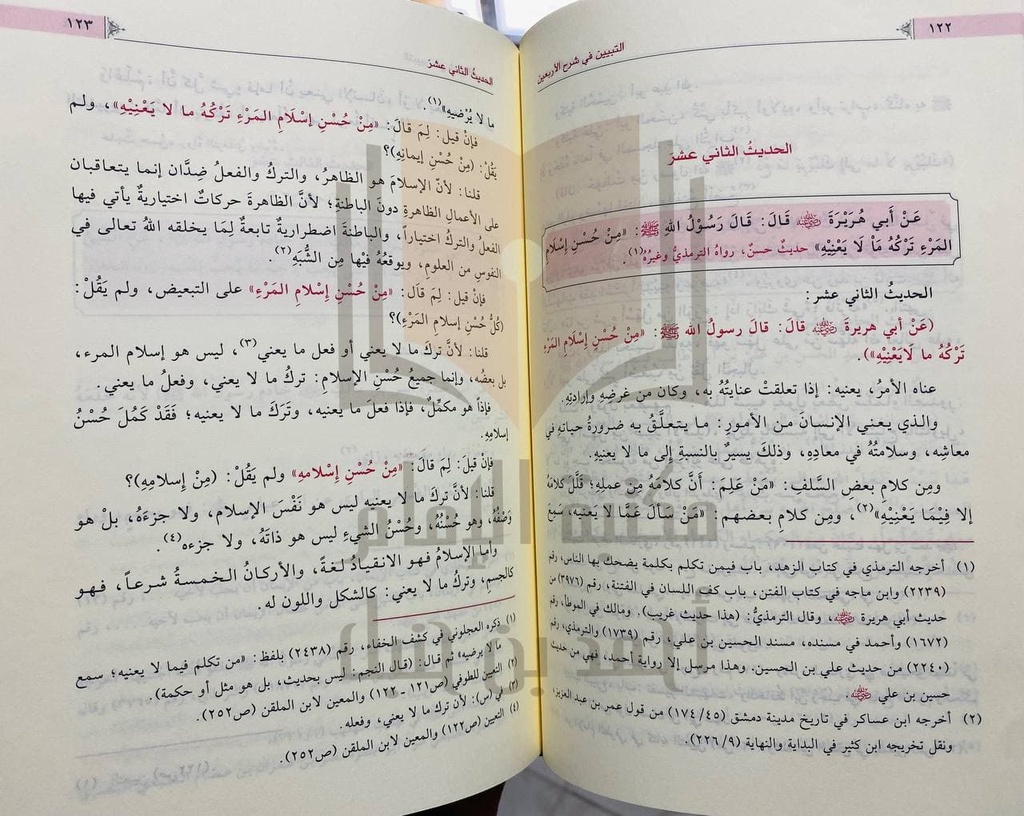 ١٢٢
التبيين في شرح الأربعين
الحديثُ الثاني عشرَ
عَنْ أَبي هُرَيْرَةَ رضي الله عنه قَالَ: قَالَ رَسُوْلُ اللهِ ﷺ: «مِنْ حُسْنِ إِسْلَامِ
المَرْءِ تَرْكُهُ مَاْ لَا يَعْنِيْهِ» حديث حسنٌ، رواهُ الترمذيُّ وغيرُهُ(١).
الحديثُ الثاني عشر:
(عَنْ أبي هريرةَ رضي الله عنه قالَ: قالَ رسولُ الله ﷺ: «مِنْ حُسْنِ إِسْلَامِ المَرْءِ
تَرْكُهُ ما لَايَعْنِيْهِ»).
عناه الأمرُ، يعنيه: إذا تعلقتْ عنايتُهُ به، وكان من غرضِهِ وإرادتِهِ.
والذي يعني الإنسانَ منَ الأمورِ: ما يتعلَّقُ به ضرورةُ حياتِهِ في
معاشِهِ، وسلامتُهُ في معادِهِ، وذلكَ يسيرٌ بالنسبةِ إلى ما لا يعنيهِ.
ومِن كلامِ بعضِ السلفِ: «مَنْ عَلِمَ: أنَّ كلامَهُ مِن عملِهِ؛ قلَّلَ كلامَهُ
إلا فِيْمَا يَعْنِيْهِ»(٢)، ومِن كلامِ بعضهم: «مَنْ سألَ عَمَّا لَا يَعنيه، سَمِعَ
(١) أخرجه الترمذي في كتاب الزهد، باب فيمن تكلم بكلمة يضحك بها الناس، رقم
(٢٢٣٩) وابن ماجه في كتاب الفتن، باب كف اللسان في الفتنة، رقم (٣٩٧٦) من
حديث أبي هريرة رضي الله عنه، وقال الترمذيُّ: (هذا حديث غريب). ومالك في الموطأ، رقم
(١٦٧٢) وأحمد في مسنده، مسند الحسين بن علي، رقم (١٧٣٩) والترمذي، رقم
(٢٢٤٠) من حديث علي بن الحسين. وهذا مرسل إلا رواية أحمد، فهي من حديث
حسين بن علي رضي الله عنه.
(٢) أخرجه ابن عساكر في تاريخ مدينة دمشق (١٧٤/٤٥) من قول عمر بن عبد العزيز،
ونقل تخريجه ابن كثير في البداية والنهاية (٢٢٦/٩).
١٢٣
الحديثُ الثاني عشرَ
ما لا يُرْضيهِ»(١).
فإنْ قيل: لِمَ قالَ: «مِنْ حُسْنِ إِسْلَامِ المَرْءِ تَرْكُهُ ما لا يَعْنِيْهِ»، ولم
يقُلْ: (مِنْ حُسْنِ إيمانِهِ)؟
قلنا: لأنّ الإسلامَ هو الظاهرُ، والتركُ والفعلُ ضِدَّان إنما يتعاقبان
على الأعمالِ الظاهرةِ دونَ الباطنةِ؛ لأنَّ الظاهرةَ حركات اختياريةٌ يأتي فيها
الفعلُ والتركُ اختياراً، والباطنةَ اضطراريةٌ تابعةٌ لِمَا يخلقه اللهُ تعالى في
النفوسِ من العلومِ، ويوقعُهُ فيْها مِن الشُّبَهِ(٢).
فإنْ قيلَ: لِمَ قالَ: «مِنْ حُسْنِ إسْلامِ المَرْءِ» على التبعيض، ولم يَقُلْ:
(كُلُّ حُسْنِ إسلامِ المَرْءِ)؟
قلنا: لأنّ تركَ ما لا يعني أو فعل ما يعني(٣)، ليس هو إسلام المرء،
بل بعضُه، وإنما جميعُ حُسْنِ الإسلامِ: تركُ ما لا يعني، وفعلُ ما يعني.
فإذاً هو مكمِّلٌ، فإذا فعلَ ما يعنيه، وتَرَكَ ما لا يعنيه؛ فَقَدْ كَمُلَ حُسْنُ
إسلامِهِ.
فإنْ قيلَ: لِمَ قالَ: «مِنْ حُسْنِ إسْلامِهِ» ولم يَقُلْ: (مِنْ إسلامِهِ)؟
قلنا: لأنَّ تركَ ما لا يعنيه ليس هو نَفْسَ الإسلام، ولا جزءَهُ، بلْ هو
وَصْفُهُ، وهو حُسْنُهُ، وحُسْنُ الشيءِ ليس هو ذاتَهُ، ولا جزءه(٤).
وأما الإسلامُ فهو الانقيادُ لغةً، والأركانُ الخمسةُ شرعاً، فهو
كالجسمِ، وتركُ ما لا يعني: كالشكلِ واللون له.
(١) ذكره العجلوني في كشف الخفاء، رقم (٢٤٣٨) بلفظ: «من تكلم فيما لا يعنيه؛ سمع
ما لا يرضيه» ثم قال: (قال النجم: ليس بحديث، بل هو مثل أو حكمة).
(٢) التعيين للطوفي (ص١٢١ - ١٢٢) والمعين لابن الملقن (ص٢٥٢).
(٣) في (س): لأن ترك ما لا يعني، وفعله.
(٤) التعيين (ص١٢٢) والمعين لابن الملقن (ص٢٥٢).